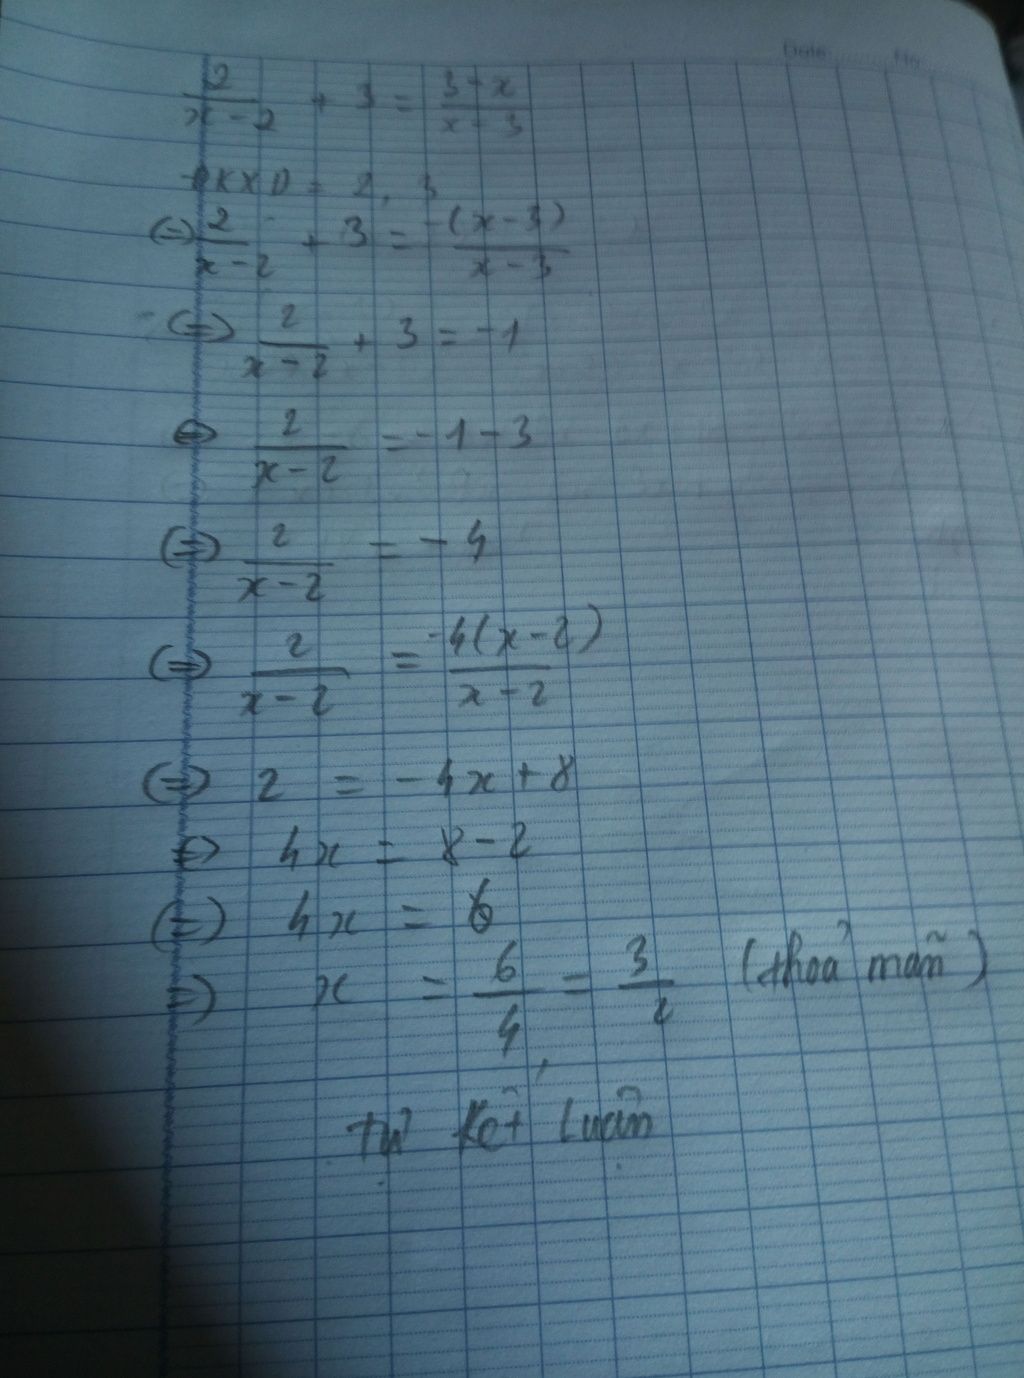 Date No
2/(x - 2) + 3 = (3 - x)/(x - 3)
ĐKXĐ = 2, 3
(=) 2/(x - 2) + 3 = -(x - 3)/(x - 3)
(=) 2/(x - 2) + 3 = -1
(=) 2/(x - 2) = -1 - 3
(=) 2/(x - 2) = -4
(=) 2/(x - 2) = -4(x - 2)/(x - 2)
(=) 2 = -4x + 8
(=) 4x = 8 - 2
(=) 4x = 6
(=) x = 6/4 = 3/2 (thoả mãn)
tự kết luận